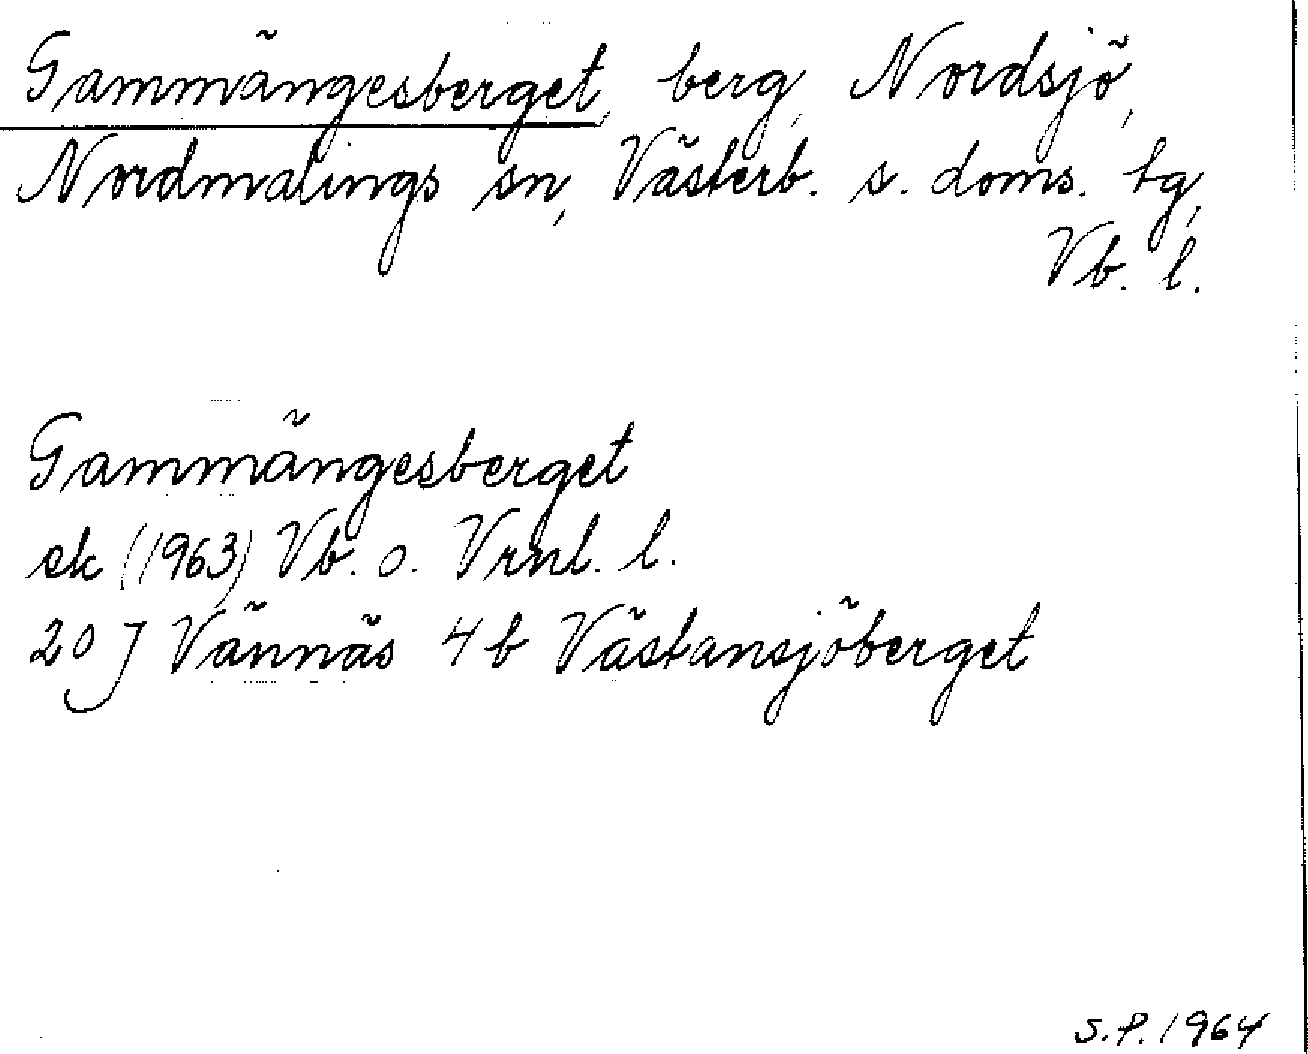 Gammängesberget, berg, Nordsjö,
Nordmalings sn, Västerb. s. doms. tg,
Vb. l.
Gammängesberget
ek (1963) Vb. o. Vrnl. l.
20 J Vännäs 4 b Västansjöberget
S.P. 1964